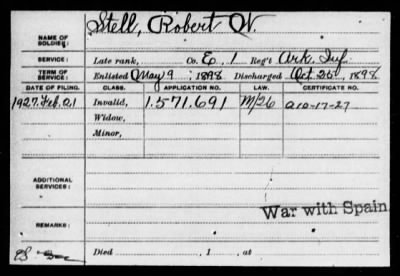 NAME OF SOLDIER: Stell, Robert W.
SERVICE: Late rank, Co. E, 1 Reg't Ark. Inf.
TERM OF SERVICE: Enlisted May 9, 1898 Discharged Oct. 25, 1898
DATE OF FILING. CLASS. APPLICATION NO. LAW. CERTIFICATE NO.
1927. Feb. 21 Invalid, 1.571.691 M/26 a10-17-27
Widow,
Minor,
ADDITIONAL SERVICES:
War with Spain
REMARKS:
Died , 1 , at